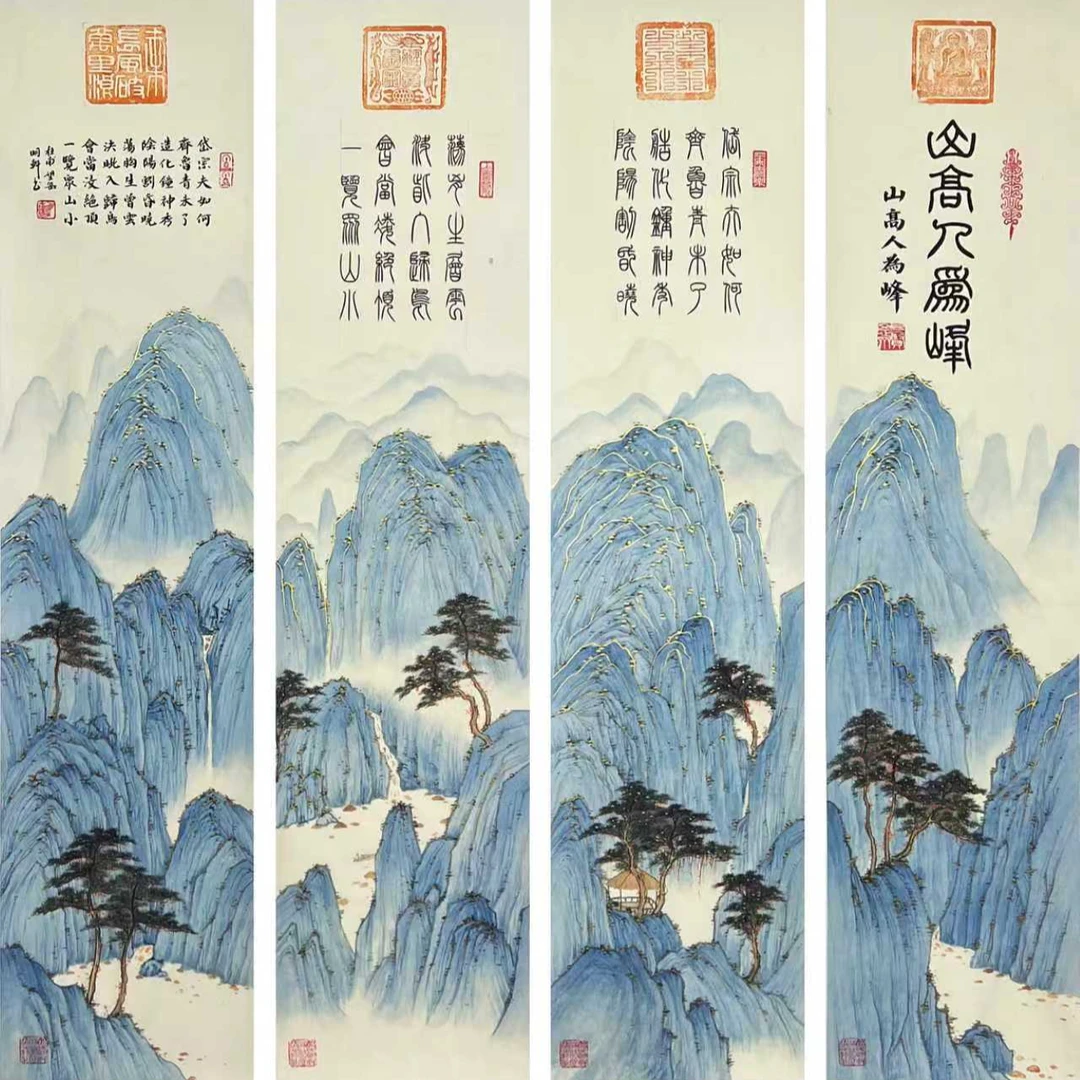 山高人為峰
山高人為峰
岱宗夫如何
齊魯青未了
造化鍾神秀
陰陽割昏曉
蕩胸生層雲
決眥入歸鳥
會當凌絕頂
一覽眾山小
岱宗夫如何
齊魯青未了
造化鍾神秀
陰陽割昏曉
蕩胸生曾雲
決眦入歸鳥
會當凌絕頂
一覽眾山小
杜甫望岳